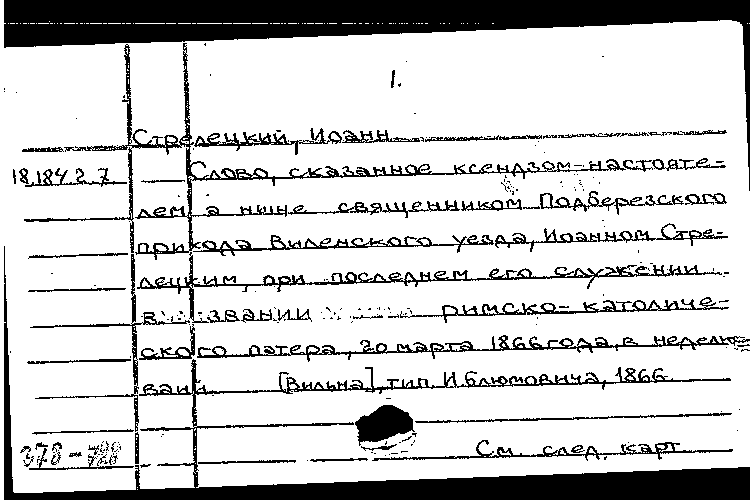 1.
Стрелецкий, Иоанн
18.184.2.7 Слово, сказанное ксендзом-настояте-
лем а ныне священником Подберезского
прихода Виленского уезда, Иоанном Стре-
лецким, при последнем его служении
в звании римско-католиче-
ского патера, 20 марта 1866 года, в неделю
ваий [Вильна], тип. И. Блюмовича, 1866.
378-728
См. след. карт